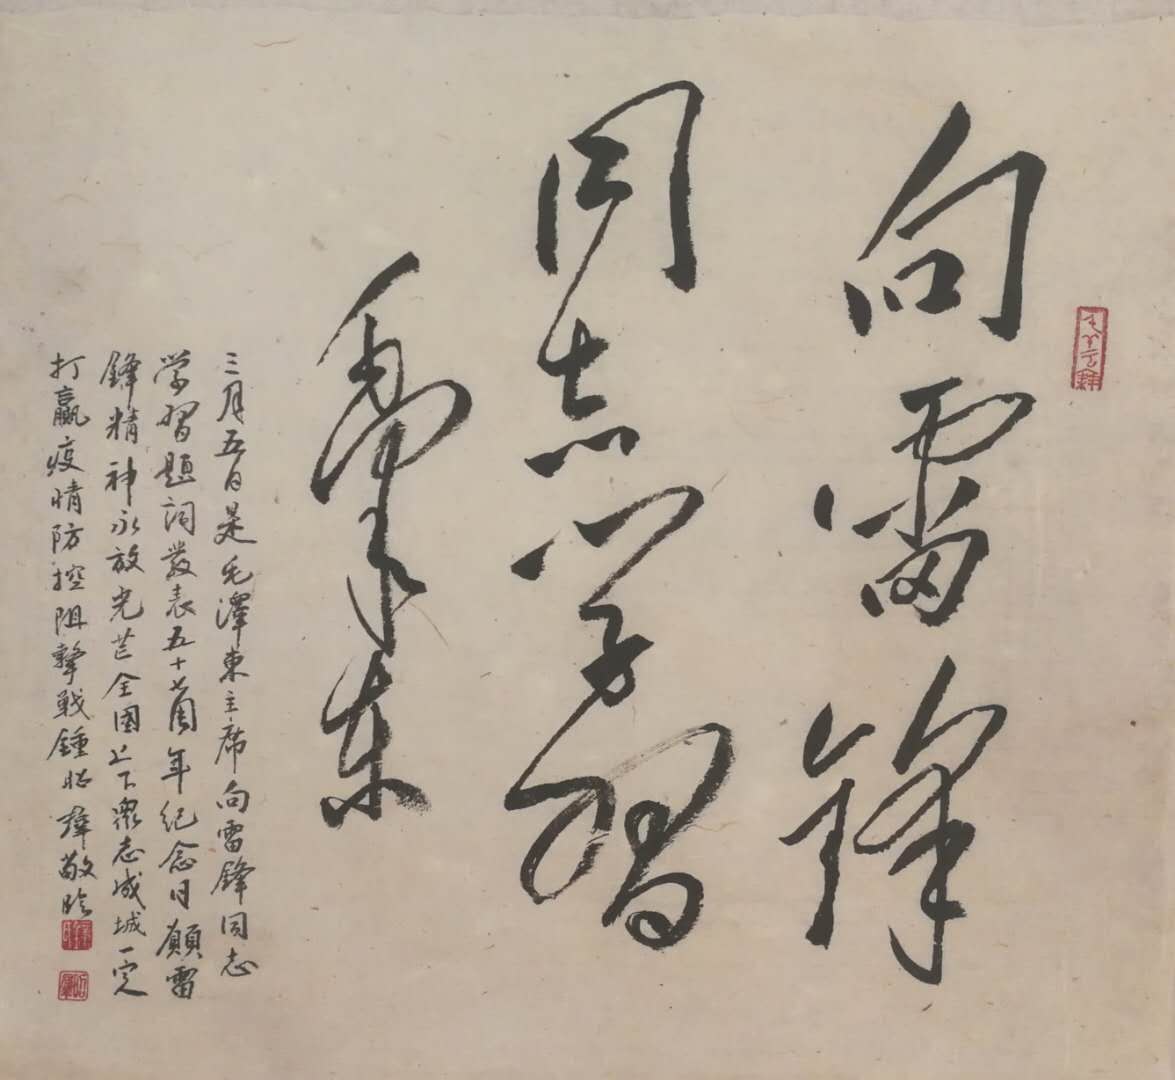 向雷锋
同志学习
毛泽东
三月五日是毛澤東主席向雷鋒同志
学習題詞發表五十七周年纪念日願雷
鋒精神永放光芒全國上下眾志成城一定
打贏疫情防控阻擊战鍾 璋敬临